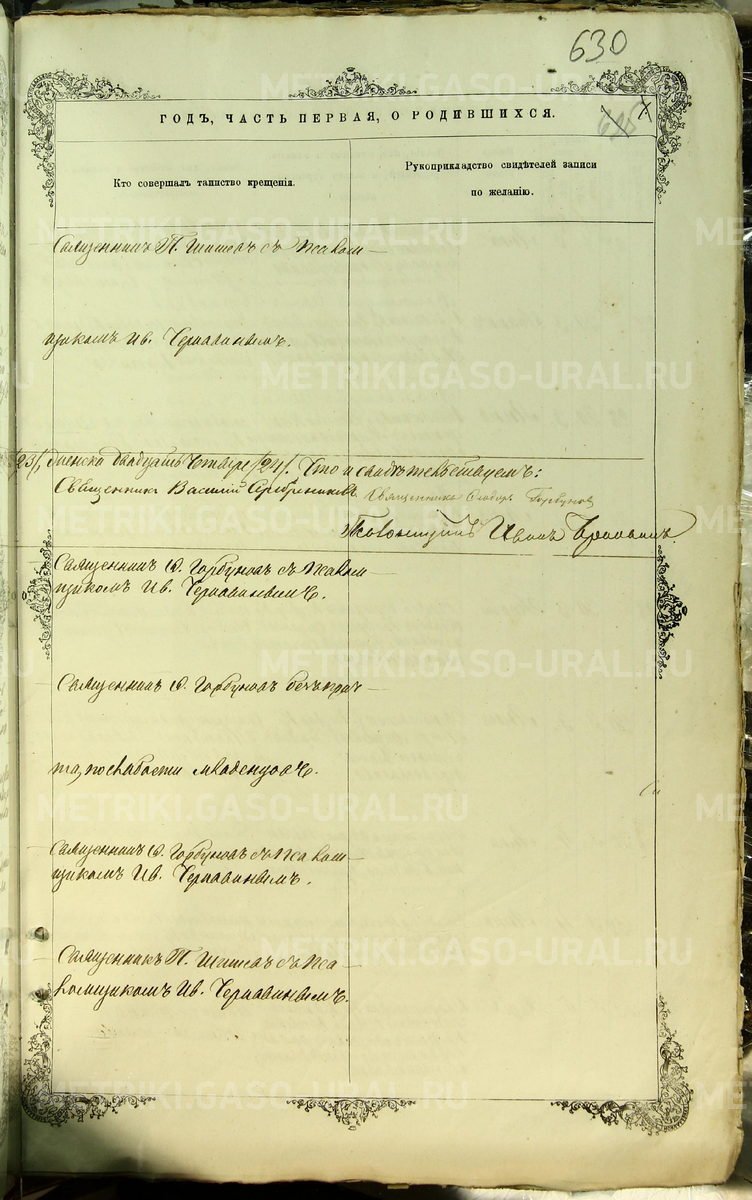 630
ГОДЪ, ЧАСТЬ ПЕРВАЯ, О РОДИВШИХСЯ.
Кто совершалъ таинство крещенія.
Рукоприкладство свидѣтелей записи
по желанію.
Священникъ П. Шишевъ съ Псалом-
щикомъ Ив. Чернавинымъ.
/23/, женска двадцать четыре /24/. Что и свидѣтельствуемъ:
Священникъ Василій Серебренниковъ
Священникъ Ѳеодоръ Горбуновъ
Псаломщикъ Иванъ
Священникъ Ѳ. Горбуновъ съ Псалом-
щикомъ Ив. Чернавинымъ.
Священникъ Ѳ. Горбуновъ безъ прич-
та, по слабости младенцовъ.
Священникъ Ѳ. Горбуновъ съ Псалом-
щикомъ Ив. Чернавинымъ.
Священникъ П. Шишевъ съ Пса-
ломщикомъ Ив. Чернавинымъ.
METRIKI.GASO-URAL.RU